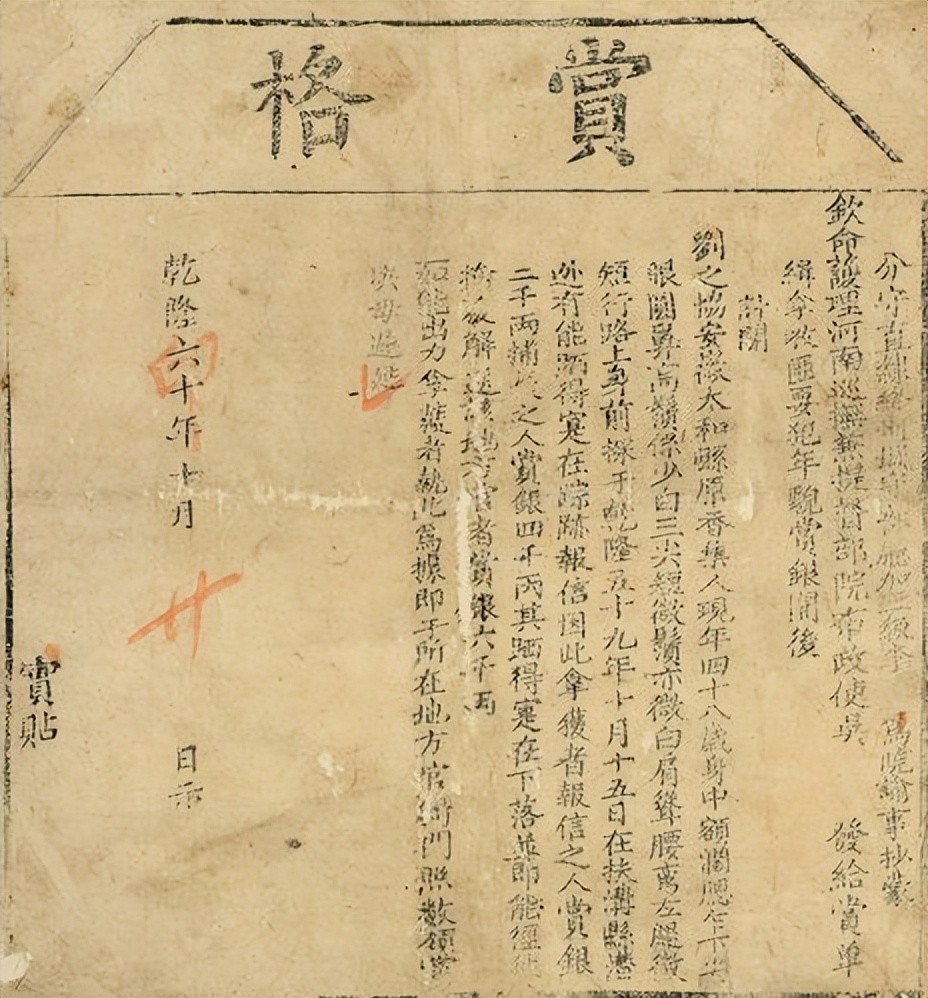 賞格
分守直隸 為曉諭事抄蒙
欽命護理河南巡撫兼提督部院布政使吳 發給賞單
緝拿收匪要犯年貌賞銀開後
計開
劉之協安徽太和縣原香集人現年四十八歲身中額濶腮
眼圓鼻高鬚係少白三尖短微鬚亦微白肩聳腰彎左腿微
短行路上身前探于乾隆五十九年十月十五日在扶溝縣潛
逃有能晒得寔在踪跡報信因此拿獲者報信之人賞銀
二千兩捕 之人賞銀四千兩其晒得寔在下落並即能徑
獲解送該地方官者賞銀六千兩
如能出力拿獲者執此為據即于所在地方官衙門照數領賞
決毋遲延
乾隆六十年十月 廿 日示
實貼